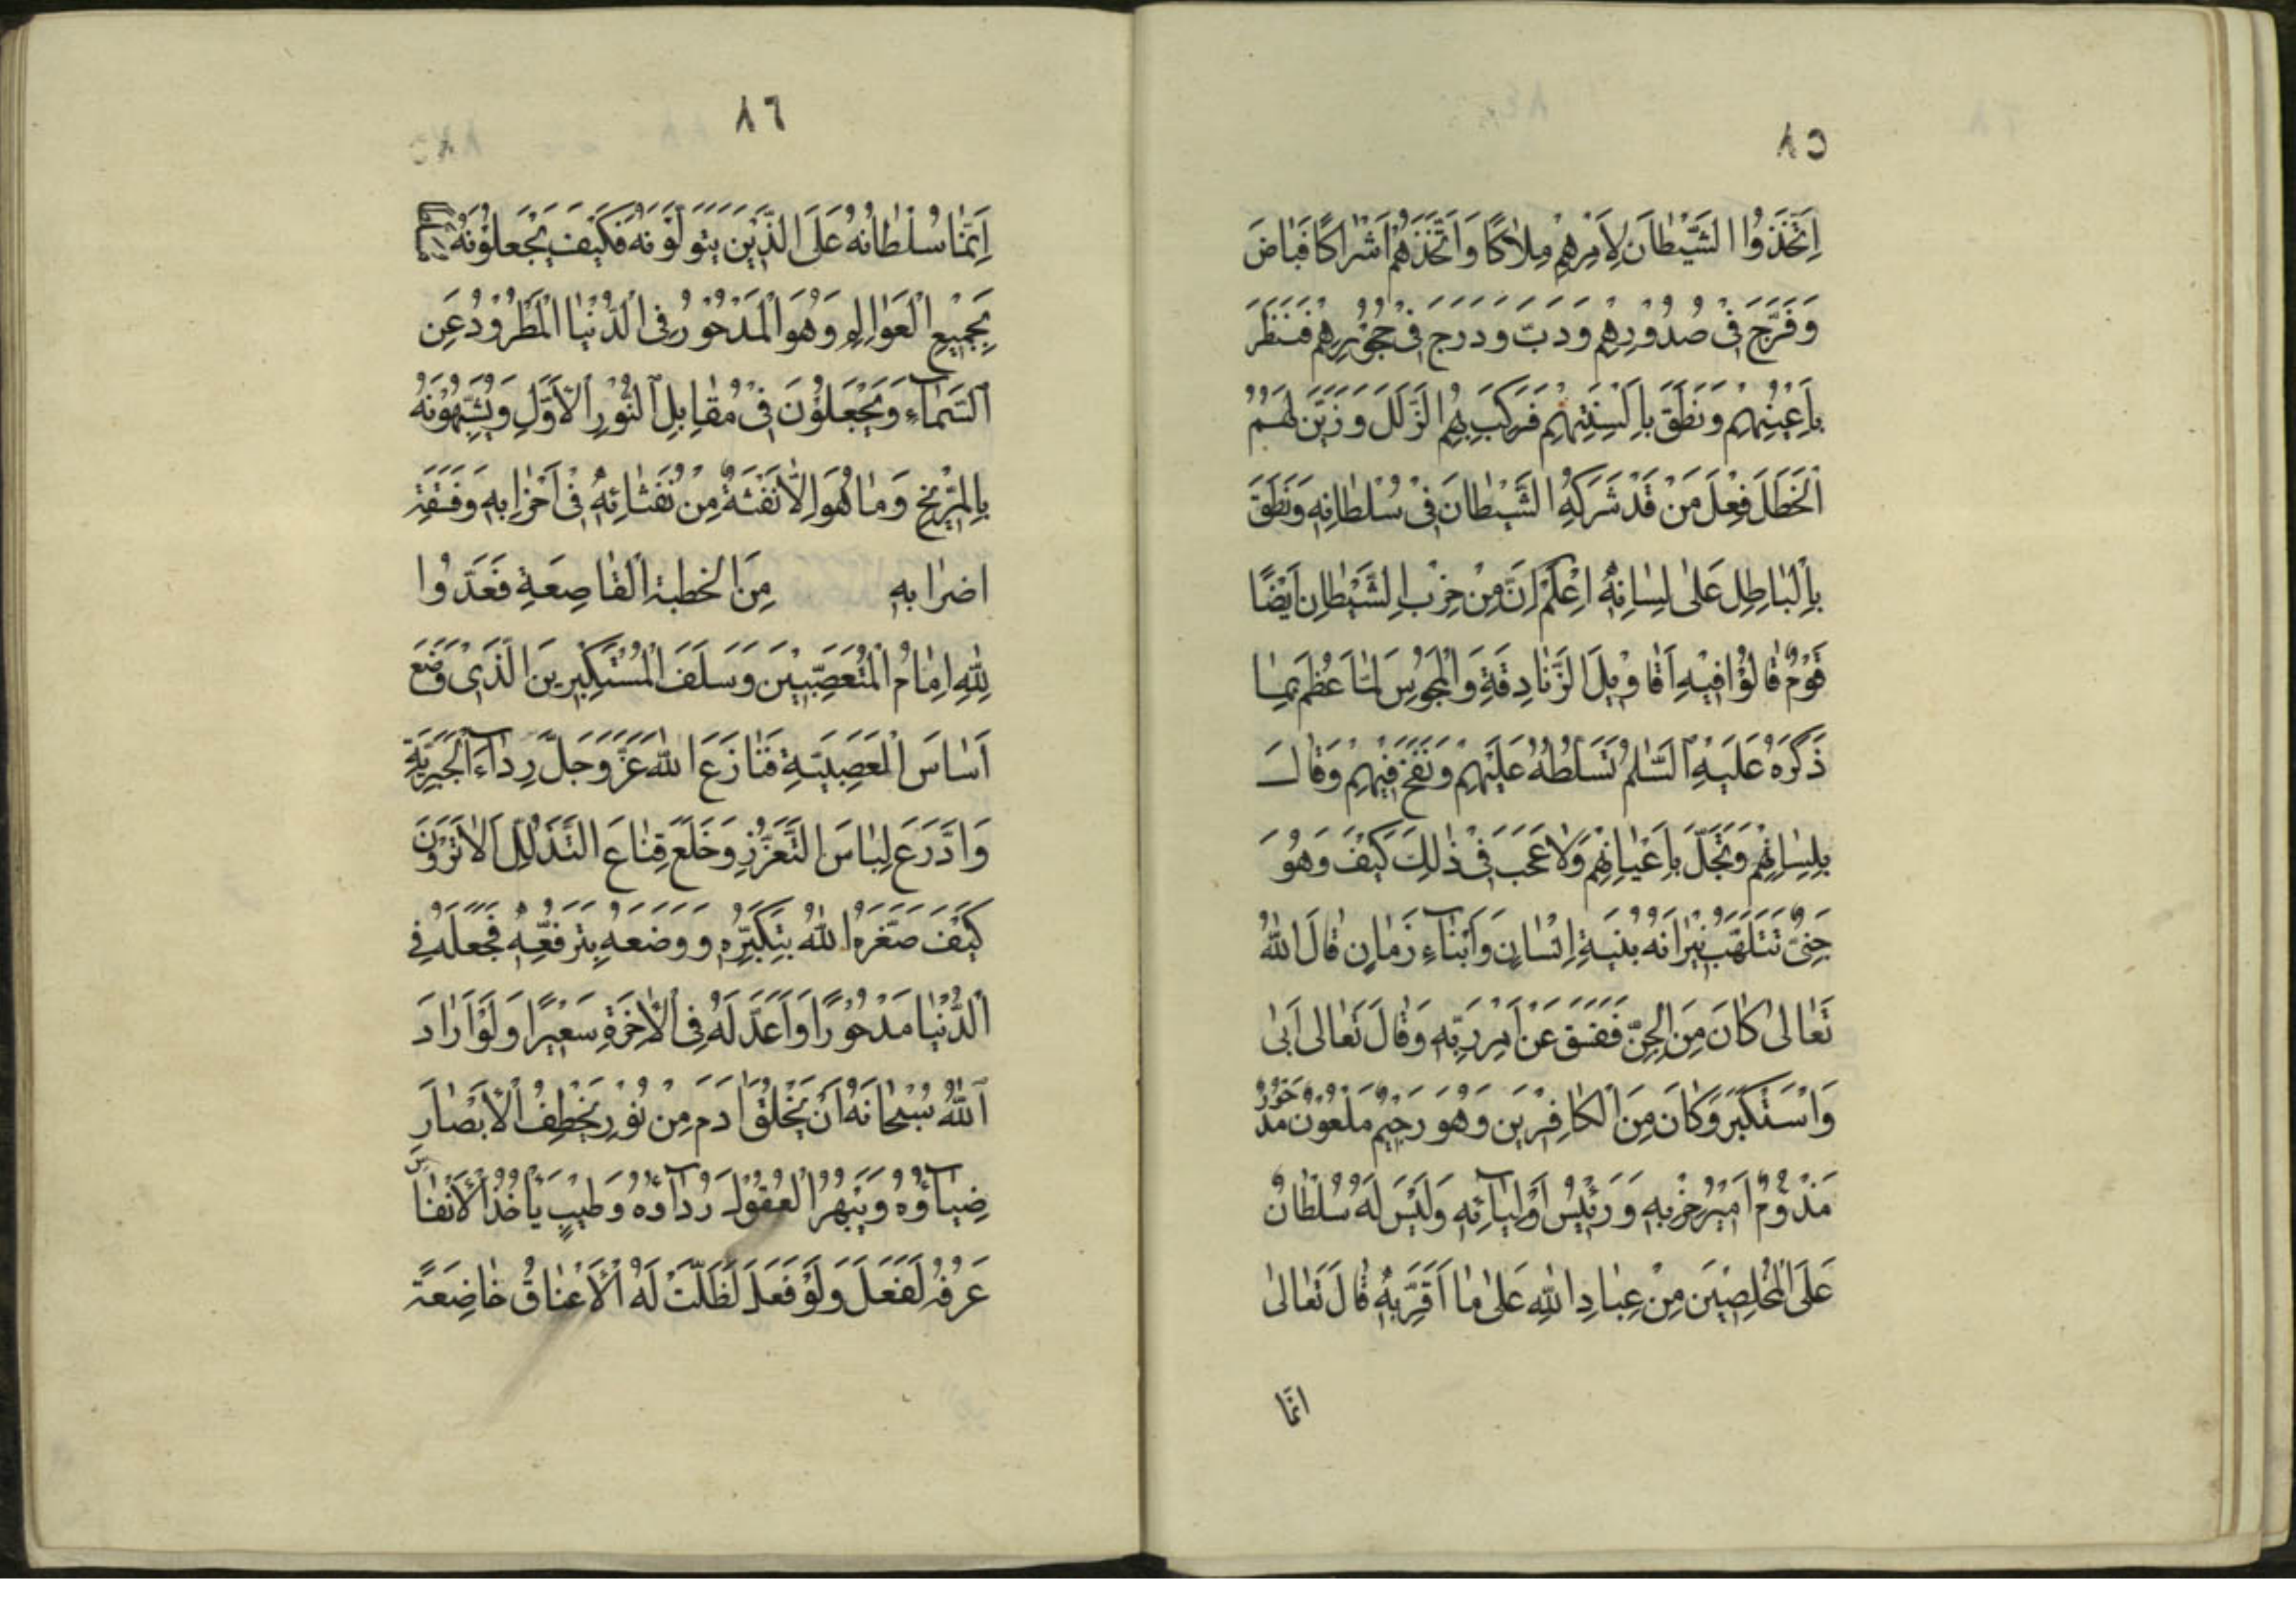 ٨٥
اِتَّخَذُوا الشَّيْطَانَ لِاَمْرِهِمْ مِلَاكًا وَاتَّخَذَهُمْ اَشْرَاكًا فَبَاضَ
وَفَرَّخَ فِىْ صُدُوْرِهِمْ وَدَبَّ وَدَرَجَ فِىْ حُجُوْرِهِمْ فَنَظَرَ
بِاَعْيُنِهِمْ وَنَطَقَ بِاَلْسِنَتِهِمْ فَرَكِبَ بِهِمُ الزَّلَلَ وَزَيَّنَ لَهُمُ
الْخَطَلَ فِعْلَ مَنْ قَدْ شَرِكَهُ الشَّيْطَانُ فِىْ سُلْطَانِهِ وَنَطَقَ
بِالْبَاطِلِ عَلٰى لِسَانِهِ اِعْلَمْ اِنَّ مِنْ حِزْبِ الشَّيْطَانِ اَيْضًا
قَوْمٌ قَالُوْا فِيْهِ اَقَاوِيْلَ الزَّنَادِقَةِ وَالْمَجُوْسِ لَمَّا عَظُمَ بِمَا
ذَكَرَهُ عَلَيْهِ السَّلٰمُ تَسَلُّطُهُ عَلَيْهِمْ وَنَفَخَ فِيْهِمْ وَقَالَ
بِلِسَانِهِمْ وَتَجَلَّ بِاَعْيَانِهِمْ وَلَا عَجَبَ فِىْ ذٰلِكَ كَيْفَ وَهُوَ
جِنِىٌّ تَتَلَهَّبُ نِيْرَانُهُ بُنْيَةِ اِنْسَانٍ وَاَبْنَآءِ زَمَانٍ قَالَ اللهُ
تَعَالٰى كَانَ مِنَ الْجِنِّ فَفَسَقَ عَنْ اَمْرِ رَبِّهِ وَقَالَ تَعَالٰى اَبٰى
وَاسْتَكْبَرَ وَكَانَ مِنَ الْكَافِرِيْنَ وَهُوَ رَجِيْمٌ مَلْعُوْنٌ مَدْحُوْرٌ
مَذْؤُمٌ اَمِيْرُ حِزْبِهِ وَرَئِيْسُ اَوْلِيَآئِهِ وَلَيْسَ لَهُ سُلْطَانٌ
عَلَى الْمُخْلِصِيْنَ مِنْ عِبَادِ اللهِ عَلٰى مَا اَقَرَّ بِهِ قَالَ تَعَالٰى
انّما
٨٦
اِنَّمَا سُلْطَانُهُ عَلَى الَّذِيْنَ يَتَوَلَّوْنَهُ فَكَيْفَ يَجْعَلُوْنَهُ
بِجَمِيْعِ الْعَوَالِمِ وَهُوَ الْمَدْحُوْرُ فِى الدُّنْيَا الْمَطْرُوْدُ عَنِ
السَّمَآءِ وَيَجْعَلُوْنَ فِىْ مُقَابِلِ النُّوْرِ الْاَوَّلِ وَيُشَبِّهُوْنَهُ
بِالْمَرِّيْخِ وَمَا هُوَ اِلَّا نَفْثَةٌ مِنْ نَفَثَاتِهِ فِىْ اَحْزَابِهِ وَفَقَقَةِ
اضرابه مِنَ الخطبة الْقَاصِعَةِ فَعَدُوا
لِلّٰهِ اِمَامُ الْمُتَعَصِّبِيْنَ وَسَلَفُ الْمُسْتَكْبِرِيْنَ الَّذِىْ وَضَعَ
اَسَاسَ الْعَصَبِيَّةِ فَنَازَعَ اللهَ عَزَّ وَجَلَّ رِدَآءَ الْجَبَرِيَّةِ
وَادَّرَعَ لِبَاسَ التَّعَزُّزِ وَخَلَعَ قِنَاعَ التَّذَلُّلِ اَلَا تَرَوْنَ
كَيْفَ صَغَّرَهُ اللهُ بِتَكَبُّرِهِ وَوَضَعَهُ بِتَرَفُّعِهِ فَجَعَلَهُ فِى
الدُّنْيَا مَدْحُوْرًا وَاَعَدَّ لَهُ فِى الْاٰخِرَةِ سَعِيْرًا وَلَوْ اَرَادَ
اللهُ سُبْحَانَهُ اَنْ يَخْلُقَ اٰدَمَ مِنْ نُوْرٍ يَخْطِفُ الْاَبْصَارَ
ضِيَآؤُهُ وَيَبْهَرُ الْعُقُوْلَ رُدَآؤُهُ وَطِيْبٍ يَاْخُذُ الْاَنْفَاسَ
عَرْفُهُ لَفَعَلَ وَلَوْ فَعَلَ لَظَلَّتْ لَهُ الْاَعْنَاقُ خَاضِعَةً